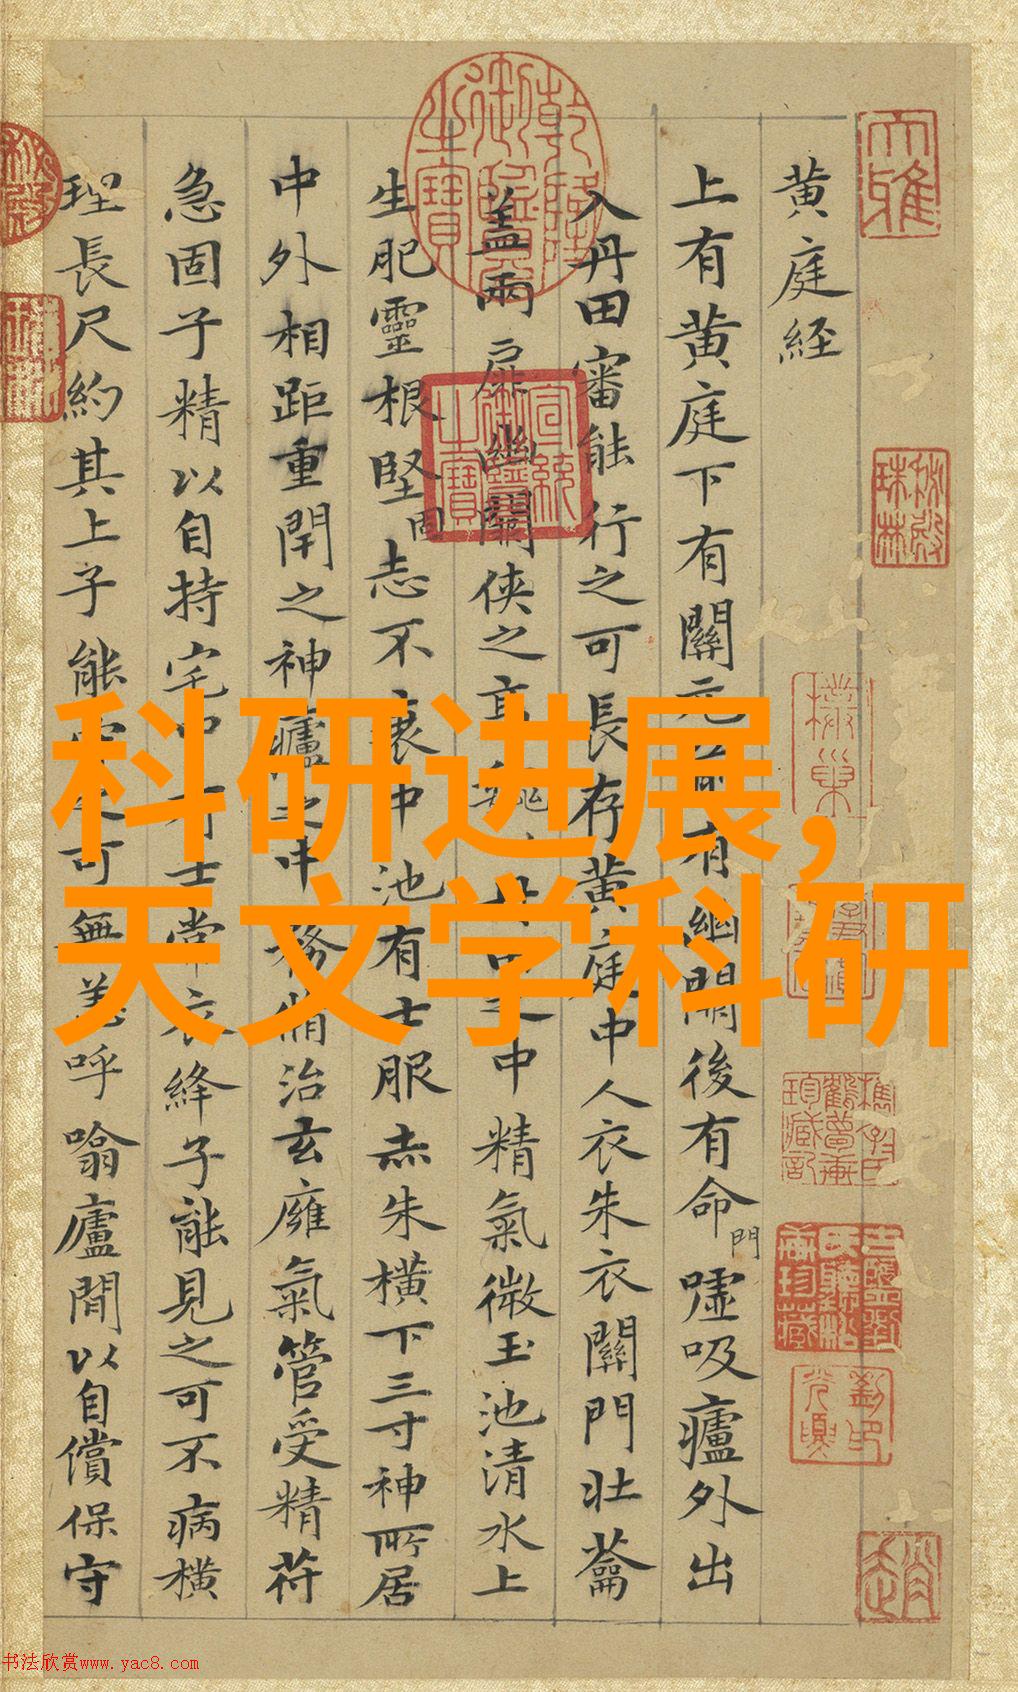 黄庭経
上有黄庭下有關元前有幽關後有命門嘘吸廬外出
入丹田審能行之可長存黄庭中人衣朱衣關門壯籥
蓋兩扉幽關俠之高巍巍丹田之中精氣微玉池清水上
生肥靈根堅固志不衰中池有士服赤朱横下三寸神所居
中外相距重閉之神廬之中務脩治玄廱氣管受精符
急固子精以自持宅中有士常衣絳子能見之可不病横
理長尺約其上子能守之可無恙呼噏廬閒以自償保守
乾隆御覽之寶
宣統御覽之寶
大雅
秘殿珠林
科研进展,
天文学科研
书法欣赏www.yac8.com